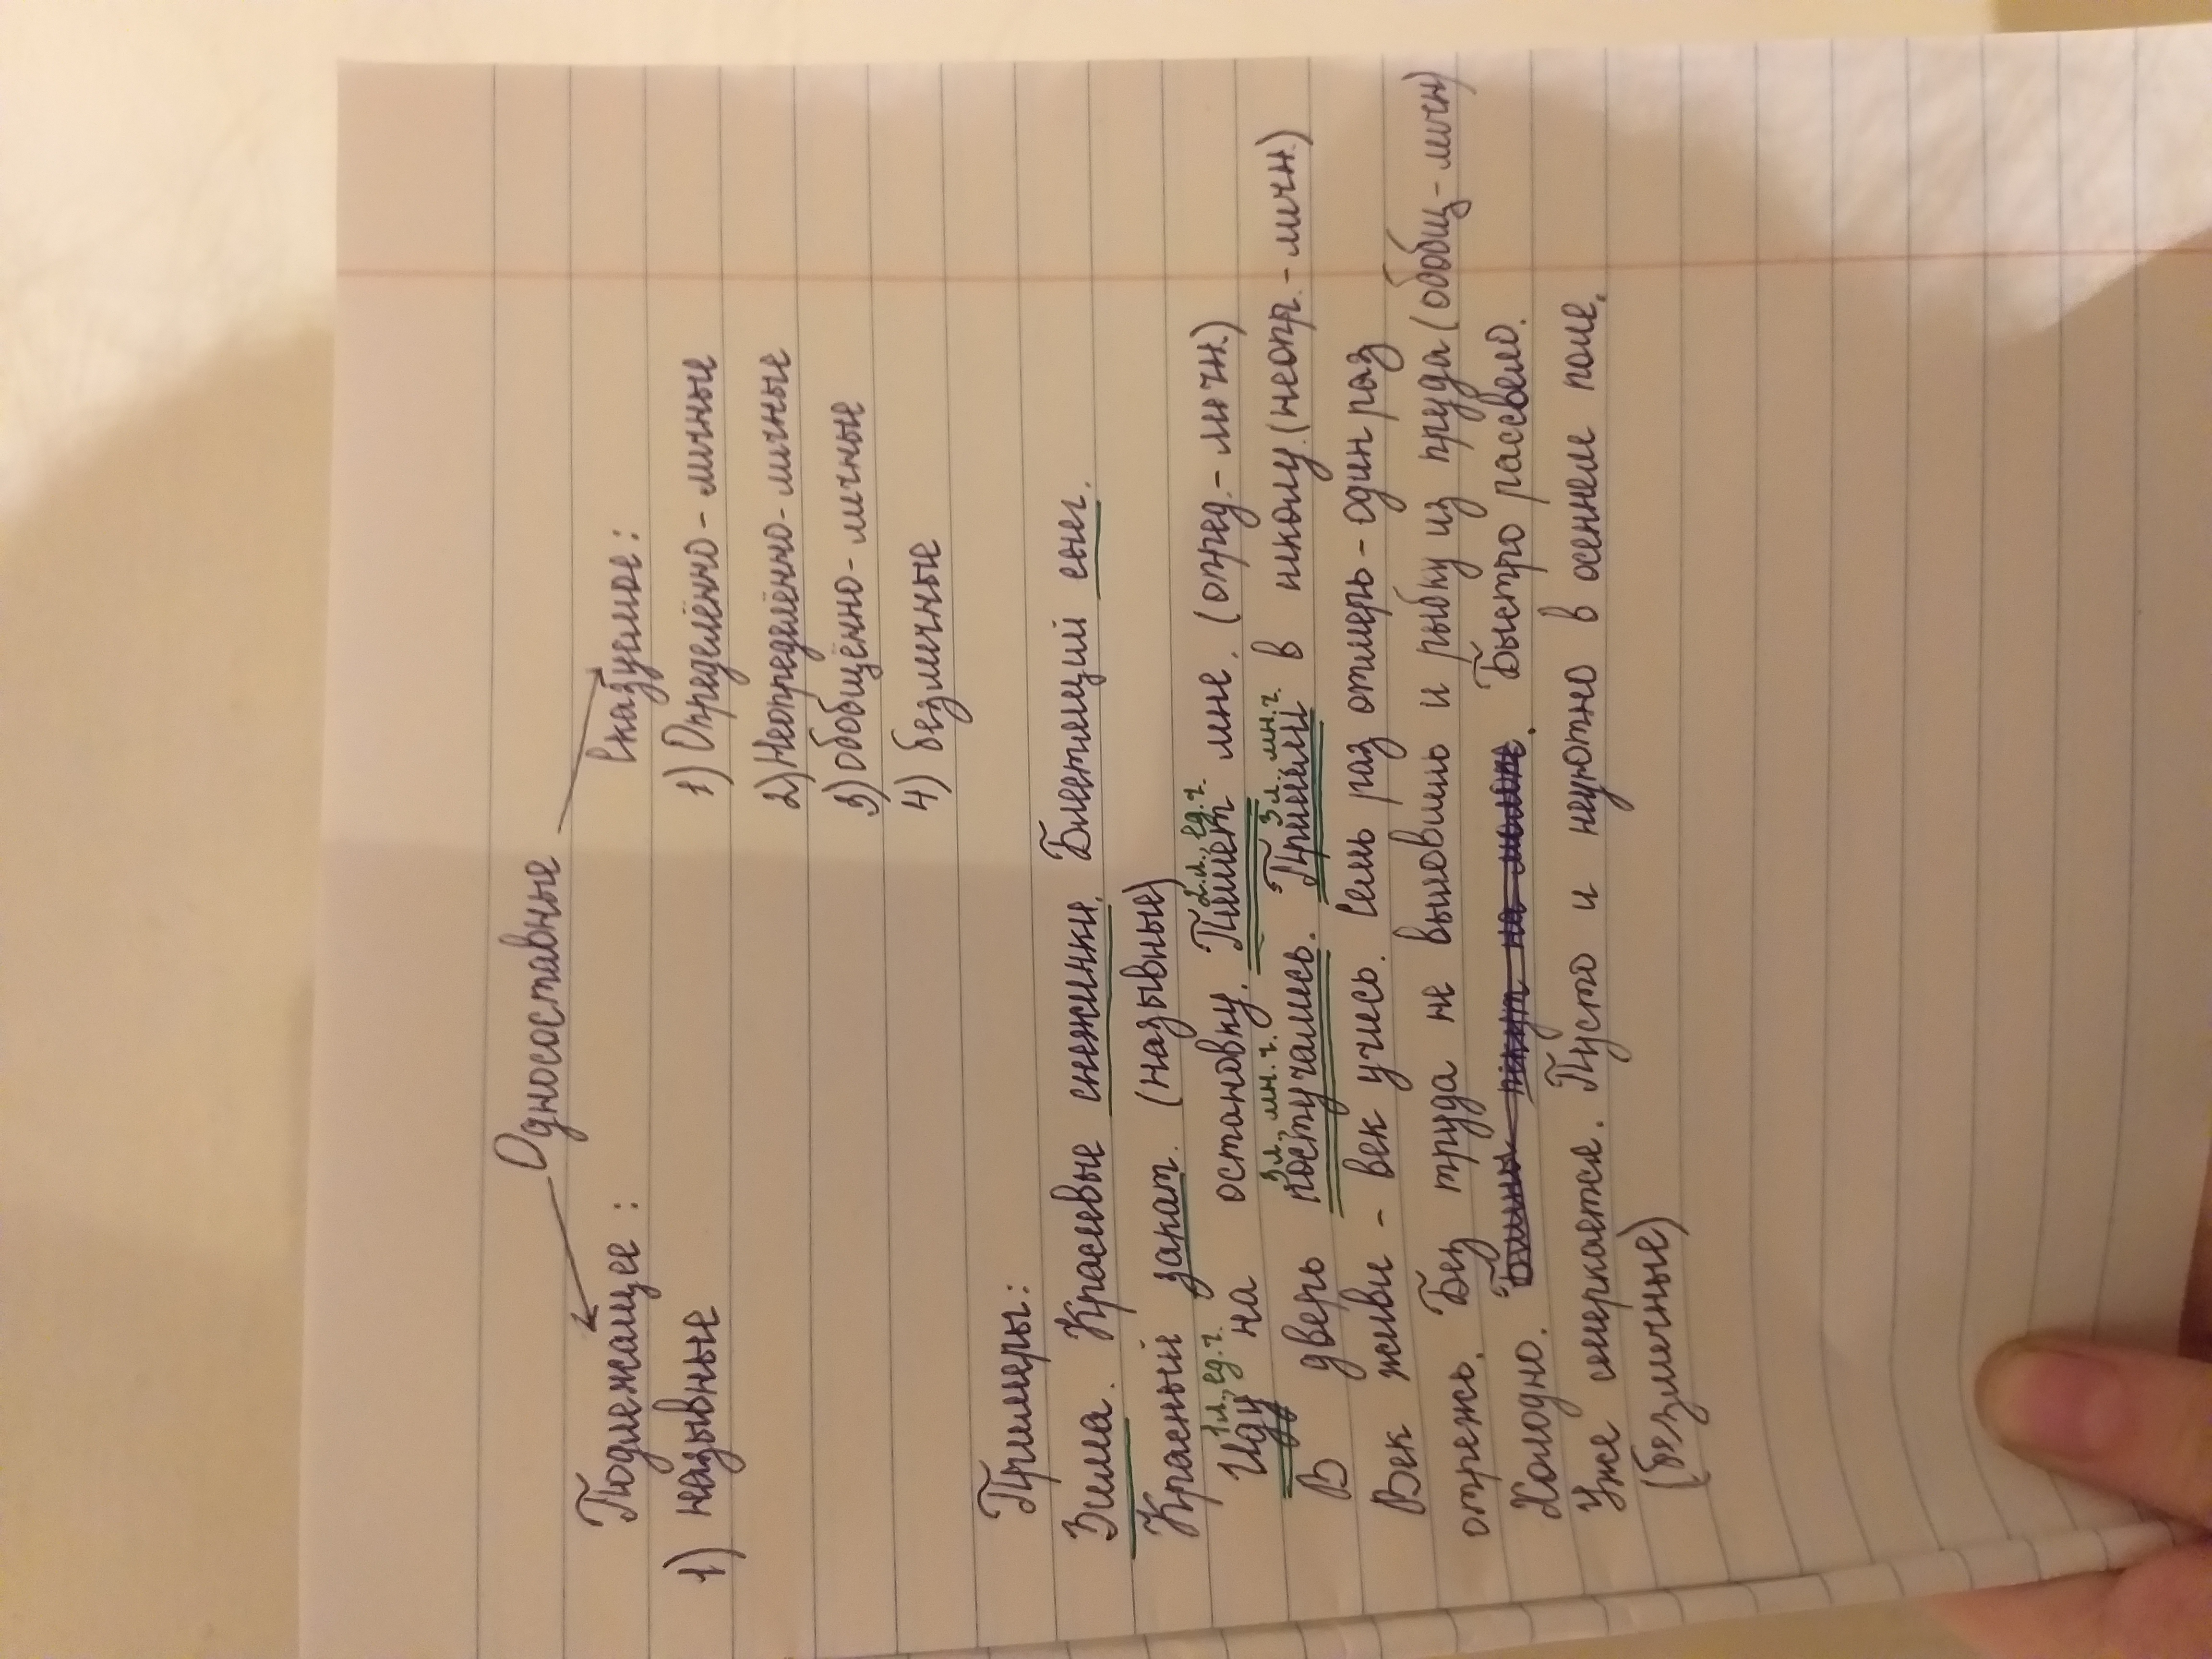 Односоставные
Подлежащее: Сказуемое:
1) назывные 1) Определённо-личные
2) Неопределённо-личные
3) Обобщённо-личные
4) безличные
Примеры:
Зима. Красивые снежинки. Блестящий снег.
Красный закат. (назывные)
1л., ед.ч. 2л., ед.ч.
Иду на остановку. Пишет мне. (опред.-личн.)
3л., мн.ч. 3л. мн.ч.
В дверь постучались. Пришли в школу. (неопр.-личн.)
Век живи - век учись. Семь раз отмерь - один раз
отрежь. Без труда не выловишь и рыбку из пруда (обобщ-личн)
Холодно. Быстро рассвело.
Уже смеркается. Пусто и неуютно в осеннем поле.
(безличные)